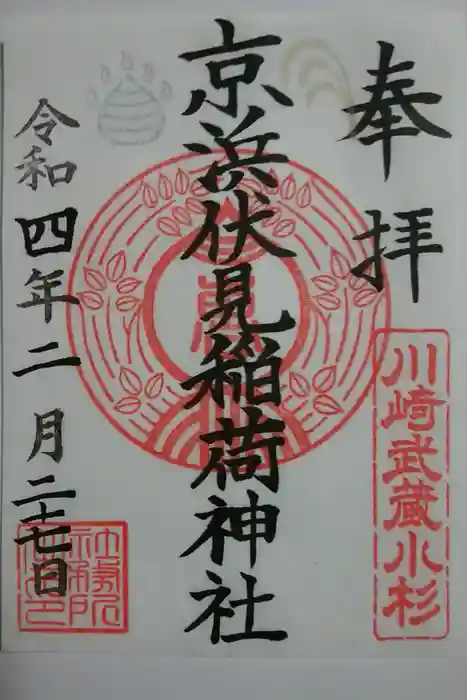 奉拝
川崎武蔵小杉
京浜伏見稲荷神社
令和四年二月二十七日